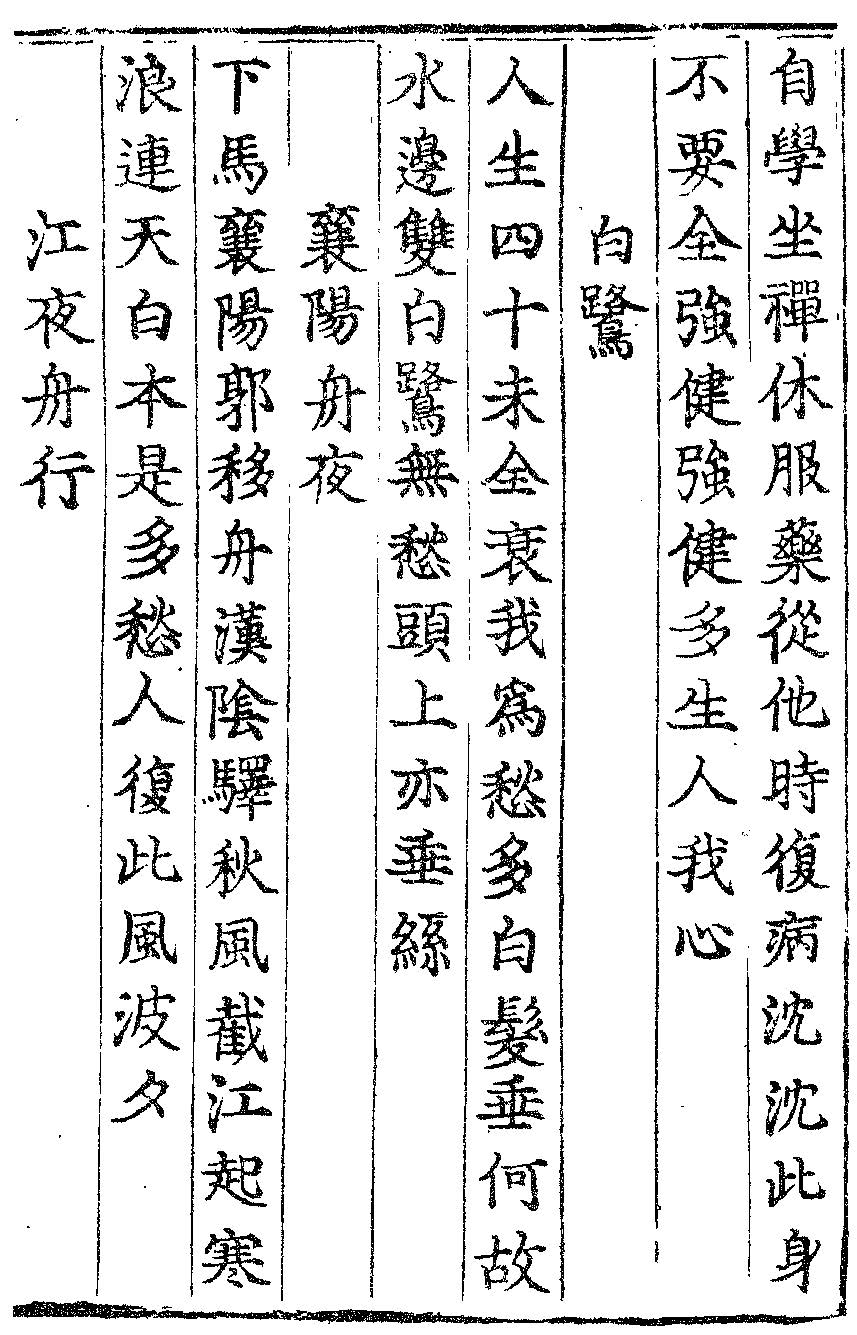 自學坐禪休服藥從他時復病沈沈此身
不要全強健強健多生人我心
白鷺
人生四十未全衰我爲愁多白髮垂何故
水邊雙白鷺無愁頭上亦垂絲
襄陽舟夜
下馬襄陽郭移舟漢陰驛秋風截江起寒
浪連天白本是多愁人復此風波夕
江夜舟行